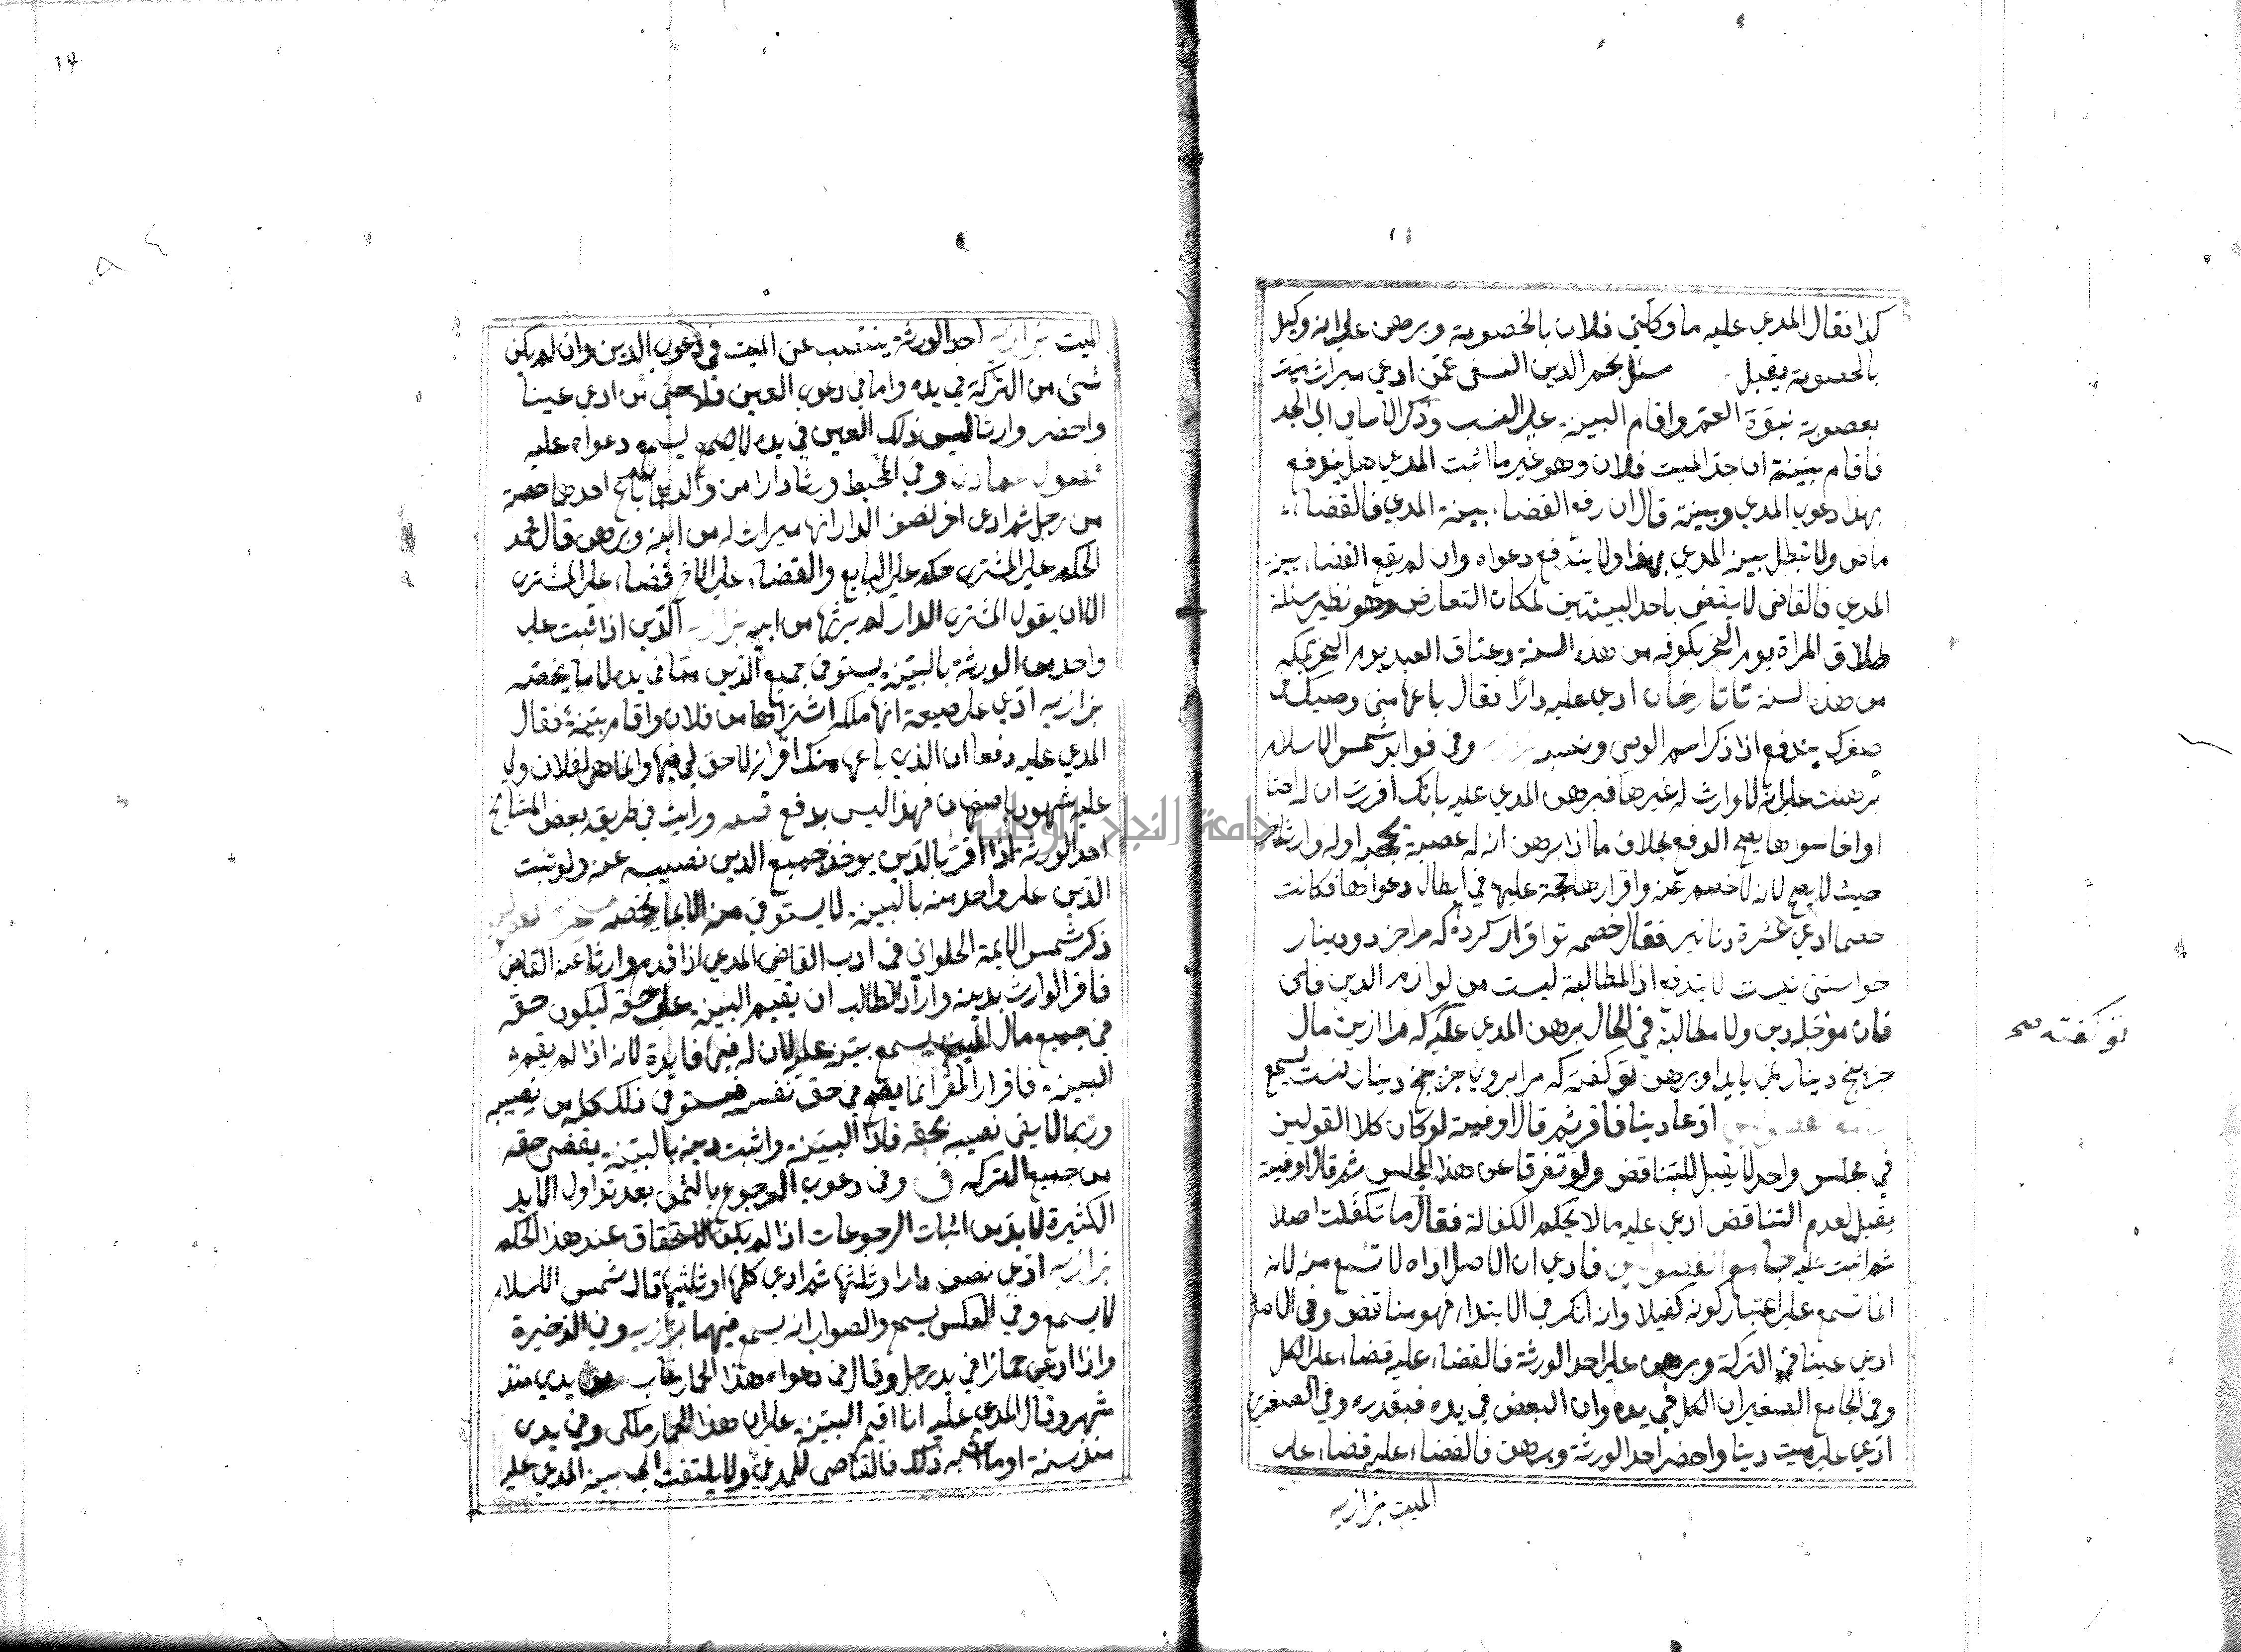 كذا فقال المدعي عليه ما وكلتني فلان بالخصومة وبرهن على انه وكيل
بالخصومة يقبل سئل نجم الدين النسفي عمن ادعي ميراث ميت
بعصوبة بنوة العم واقام البينة على النسب وذكر الاسامي الى الجد
فاقام بينة ان جد الميت فلان وهو غير ما اثبت المدعي هل يندفع
بهذا دعوي المدعي وبينته قال ان وقع القضاء ببينة المدعي فالقضاء
ماض ولا تبطل بينة المدعي بهذا ولا يندفع دعواه وان لم يقع القضاء ببينة
المدعي فالقاضي لا يقضي باحد البينتين لمكان التعارض وهو نظير مسئلة
طلاق المراة يوم النحر بكوفة من هذه السنة وعتاق العبد يوم النحر بمكة
من هذه السنة تاتارخان ادعي عليه دارا فقال باعها مني وصيك في
صغرك يندفع اذا ذكر اسم الوصي ونسبه بزازيه وفي فوايد شمس الاسلام
برهنت على انه لا وارث له غيرها فبرهن المدعي عليه بانك اقررت ان له اختا
او اخا سواها يصح الدفع بخلاف ما اذا برهن انه له عصبة او له وارثا اخر
حيث لا يصح لانه لا خصم عنه واقرارها حجة عليها في ابطال دعواها فكانت
خصما ادعي عشرة دنانير فقال خصمه تو اقرار كرده كه مرا جز دو دينار
خواستني نيست لا يندفع اذ المطالبة ليست من لوازم الدين فان
فان مؤجله دين ولا مطالبة في الحال برهن المدعي عليه كه مرا ازين مال
جز پنج دينار نمي بايد او برهن تو كفته كه مرا بروي جز پنج دينار نيست يسمع
ادعا دينا فاقر ثم قال اوفيته لو كان كلا القولين
في مجلس واحد لا يقبل للتناقض ولو تفرقا عن هذا المجلس ثم قال اوفيته
يقبل لعدم التناقض ادعي عليه مالا بحكم الكفالة فقال ما تكفلت اصلا
ثم اثبت عليه جامع الفصولين فادعي ان الاصل اداه لا تسمع منه لانه
انما تسمع على اعتبار كونه كفيلا وانه انكر في الابتداء فهو مناقض وفي الاصل
ادعي عينا في التركة وبرهن على احد الورثة فالقضاء عليه قضاء على الكل
وفي الجامع الصغير ان الكل في يده وان البعض في يده فبقدره وفي الصغري
ادعي على ميت دينا واحضر احد الورثة وبرهن فالقضاء عليه قضاء على
الميت بزازيه
تو كفته صح
١٤
الميت بزازيه احد الورثة ينتصب عن الميت في دعوي الدين وان لم يكن
شئ من التركة في يده واما في دعوي العين فلا حتى من ادعي عينا
واحضر وارثا ليس ذلك العين في يده لا يسمع دعواه عليه
فصول عمادي وفي المحيط ورثا دارا من والدهما باع احدهما حصته
من رجل ثم ادعي اخر نصف الدار انها ميراث له من ابيه وبرهن قال محمد
الحكم على المشتري حكم على البايع والقضاء على الاخ قضاء على المشتري
الا ان يقول المشتري الدار لم يرثها من ابيه بزازيه الدين اذا ثبت على
واحد من الورثة بالبينة يستوفي جميع الدين مما في يده لا ما يخصه
بزازيه ادعي على ضيعة انها ملكه اشتراها من فلان واقام بينة فقال
المدعي عليه دفعا ان الذي باعها منك اقر انه لا حق لي فيها وانما هي لفلان ولي
عليه شهود باصفهان فهذا ليس بدفع قنيه ورايت في طريقة بعض المشايخ
احد الورثة اذا اقر بالدين يوخذ جميع الدين نصيبه عنه ولو ثبت
الدين على واحد منه بالبينة لا يستوفي منه الا بما يخصه
ذكر شمس الايمة الحلواني في ادب القاضي المدعي اذا قدم وارثا عند القاضي
فاقر الوارث بدينه واراد الطالب ان يقيم البينة على حقه ليكون حقه
في جميع مال الميت يسمع بينته عليه لان له فيه فايدة لانه اذا لم يقم
البينة فاقرار المقر انما يصح في حق نفسه فيستوفي ذلك كله من نصيبه
وربما لا يفي نصيبه بحقه فاذا البينة واثبت دينه بالبينة يقضي حقه
من جميع التركه ف وفي دعوي الرجوع بالثمن بعد تداول الايد
الكثيرة لا بد من اثبات الرجوعات اذا لم يكن الاستحقاق عند هذا الحكم
بزازيه ادعي نصف دار او ثلثها ثم ادعي كلها او ثلثيها قال شمس الاسلام
لا يسمع وفي العكس يسمع والصواب انه يسمع فيهما بزازيه وفي الذخيرة
واذا ادعي حمارا في يد رجل وقال في دعواه هذا الحمار غاب من يدي منذ
شهر وقال المدعي عليه انا اقيم البينة على ان هذا الحمار ملكي وفي يدي
منذ سنة او ما اشبه ذلك فالقاضي للمدعي ولا يلتفت الى بينة المدعي عليه
جامعة النجاح الوطنية